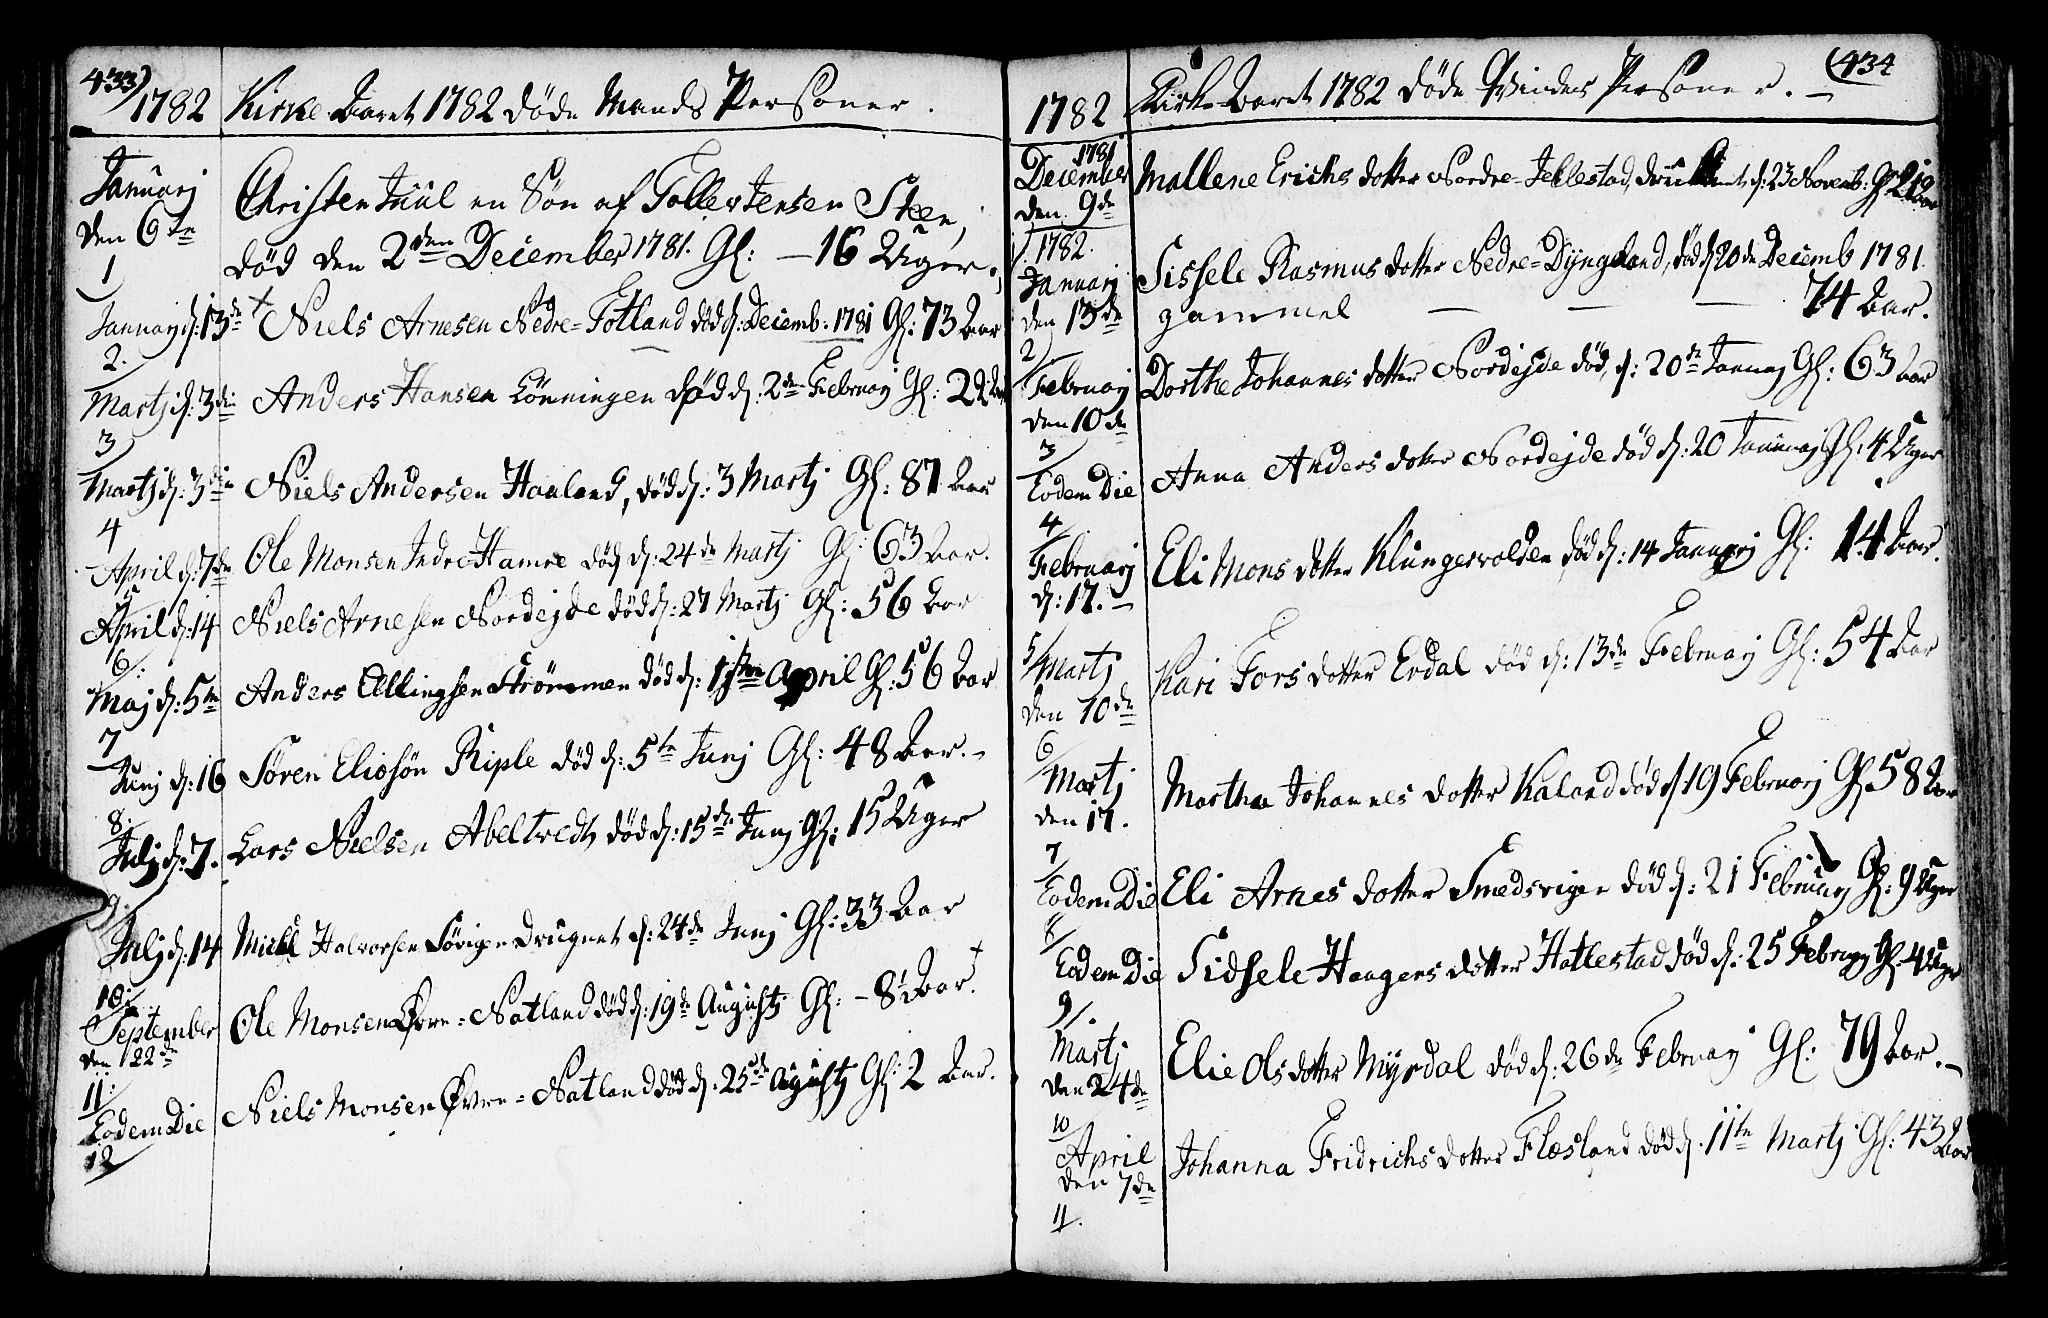 433)
1782 Kirke-Aaret 1782 døde Mands Personer.
Januarj
den 6te
1
Christen Juul en Søn af Toller Jensen Steen,
død den 2den December 1781. Gl: — 16 Uger.
Januarj d: 13de Niels Arnesen Nedre-Totland død d: Decemb. 1781 Gl: 73 Aar
2.
Martj d: 3die Anders Hansen Lönningen død d: 2de Februarj Gl:
3
Martj d: 3die Niels Andersen Haaland, død d: 3 Martj Gl: 87 Aar
4
April d: 7de Ole Monsen Indre-Hamre død d: 24de Martj Gl: 63 Aar.
5
April d: 14 Niels Arnesen Nordejde død d: 27 Martj Gl: 56 Aar
6
Maj d: 5te Anders Ellingsen Strömmen død d: 1ste April Gl: 56 Aar
7
Junj d: 16 Sören Eliesön Riple død d: 5te Junj Gl: 48 Aar.
8.
Julj d: 7. Lars Nielsen Abeltvedt død d: 15de Junj Gl: 15 Uger
9.
Julj d: 14 Mickel Halvorsen Sövigen drugnet d: 24de Junj Gl: 33 Aar
10.
September
den 22de
Ole Monsen Øvre-Natland død d: 19de Augustj Gl: — 8 Aar.
11.
Eodem Die Niels Monsen Øvre-Natland død d. 25de Augustj Gl: 2 Aar.
12
(434
1782 Kirke-Aaret 1782 døde Qvindes Personer. —
1781
December
den 9de
Mallene Erichs dotter Nordre-Jellestad, d: 23 Novemb:
1.
1782.
Januarj
den 13de
Sissele Rasmus dotter Nedre-Dyngeland, død d 20de Decemb 1781.
gammel — — — 74 Aar.
2
Februarj
den 10de
Dorthe Johannes dotter Nordejde død, d: 20de Januarj Gl: 63 Aar
3
Eodem Die
Anna Anders dotter Nordejde død d: 20 Januarj Gl: 4 Uger
4
Februarj
d: 17. —
Eli Mons dotter Klungervolden død d: 14 Januarj Gl: 14 Aar.
5
Martj
den 10de
Kari Fors dotter Erdal død d: 13de Februarj Gl: 54 Aar
6
Martj
den 17.
Martha Johannes dotter Kaland død d 19 Februarj Gl. 58 Aar
7
Eodem Die Eli Arnes dotter Smedsvigen død d: 21 Februarj Gl: 9 Uger
8
Eodem Die Sidsele Haagens dotter Hatlestad død d: 25 Februarj Gl. 4 Uger
9
Martj
den 24de
Elie Ols dotter Myrdal død d: 26de Februarj Gl: 79 Aar. —
10
April
den 7de
Johanna Fridrichs dotter Flesland død d. 11te Martj Gl: 43 Aar
11.